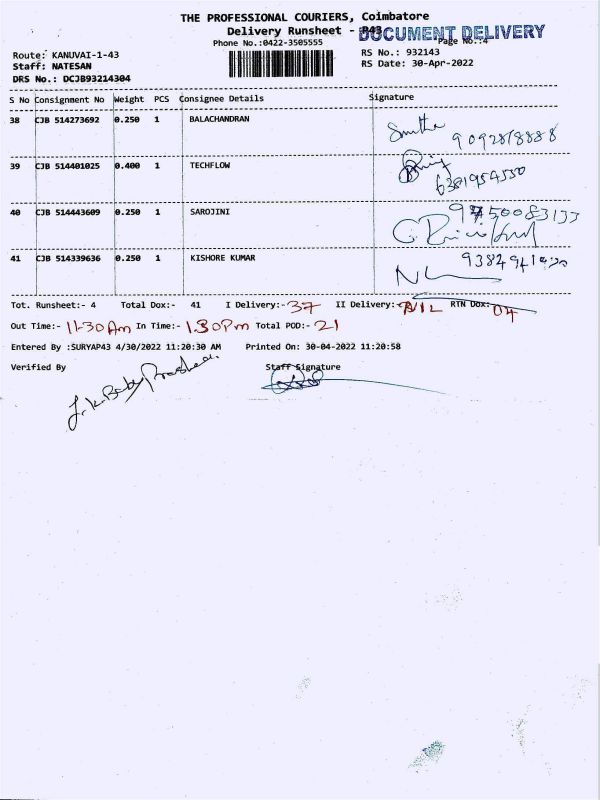 THE PROFESSIONAL COURIERS, Coimbatore
Delivery Runsheet - P43 DOCUMENT DELIVERY
Phone No.:0422-3505555 Page No.:4
Route: KANUVAI-1-43 RS No.: 932143
Staff: NATESAN RS Date: 30-Apr-2022
DRS No.: DCJB93214304
S No Consignment No Weight PCS Consignee Details Signature
38 CJB 514273692 0.250 1 BALACHANDRAN
9092818888
39 CJB 514401025 0.400 1 TECHFLOW
6381954550
40 CJB 514443609 0.250 1 SAROJINI 9750083133
41 CJB 514339636 0.250 1 KISHORE KUMAR
Tot. Runsheet:- 4 Total Dox:- 41 I Delivery:- 37 II Delivery:- NIL RTN Dox: 04
Out Time:- 11-30 Am In Time:- 1.30 Pm Total POD:- 21
Entered By :SURYAP43 4/30/2022 11:20:30 AM Printed On: 30-04-2022 11:20:58
Verified By Staff Signature